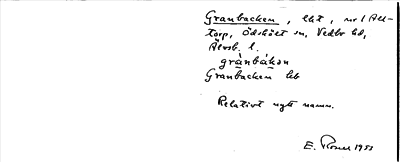 Granbacken, lht, nr 1 All-
torp, Ödskölt sn, Vedbo hd,
Älvsb. l.
gránbákən
Granbacken lht
Relativt nytt namn.
E. Rosell 1953